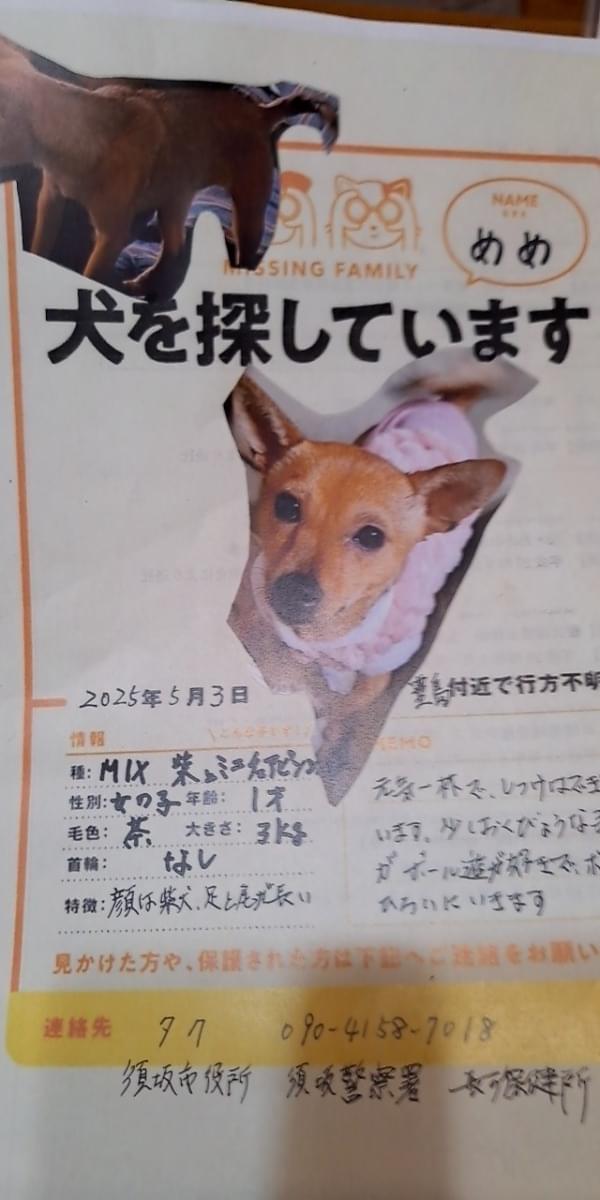 NAME
めめ
MISSING FAMILY
犬を探しています
2025年5月3日
豊島付近で行方不明
情報
種: MIX 柴とミニチュアピンシ
性別: 女の子 年齢: 1才
毛色: 茶 大きさ: 3kg
首輪: なし
特徴: 顔は柴犬、足と尾が長い
MEMO
元気一杯で、しつけはでき
います。少しおくびょうな
が ボール遊が好きで、ボ
ひろいにいきます
見かけた方や、保護された方は下記へご連絡をお願い
連絡先 090-4158-7018
須坂市役所 須坂警察署 長野保健所